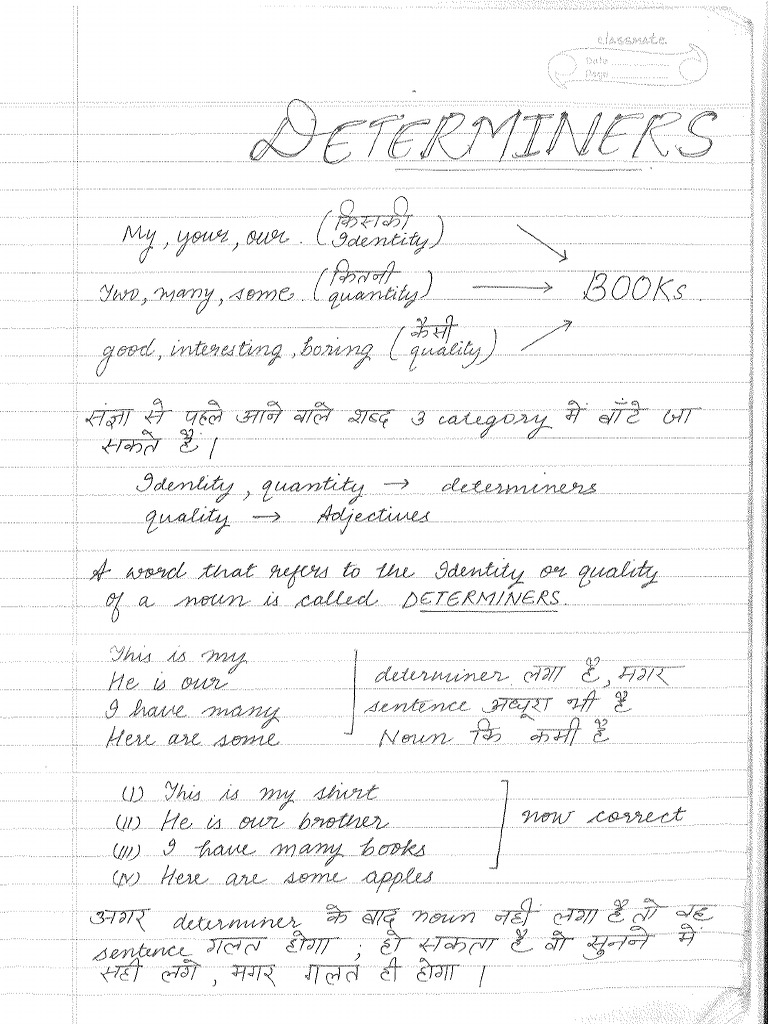 classmate
Date
Page
DETERMINERS
My, your, our. (किसकी Identity)
Two, many, some. (कितनी quantity) → BOOKs.
good, interesting, boring (कैसी quality)
संज्ञा से पहले आने वाले शब्द 3 category में बाँटे जा
सकते हैं।
Identity, quantity → determiners
quality → Adjectives
A word that refers to the Identity or quality
of a noun is called DETERMINERS.
This is my
He is our
I have many
Here are some
determiner लगा है, मगर
sentence अधूरा भी है
Noun कि कमी है
(I) This is my shirt
(II) He is our brother
(III) I have many books
(IV) Here are some apples
now correct
अगर determiner के बाद noun नहीं लगा है तो वह
sentence गलत होगा ; हो सकता है वो सुनने में
सही लगे, मगर गलत ही होगा ।